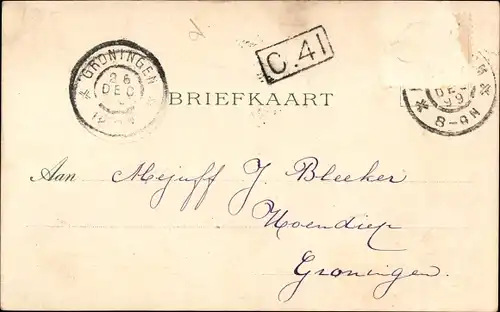 C.41
GRONINGEN
26
DEC
DEC
99
8-9N
BRIEFKAART
Aan Mejuff J. Bleeker
Hoendiep
Groningen.